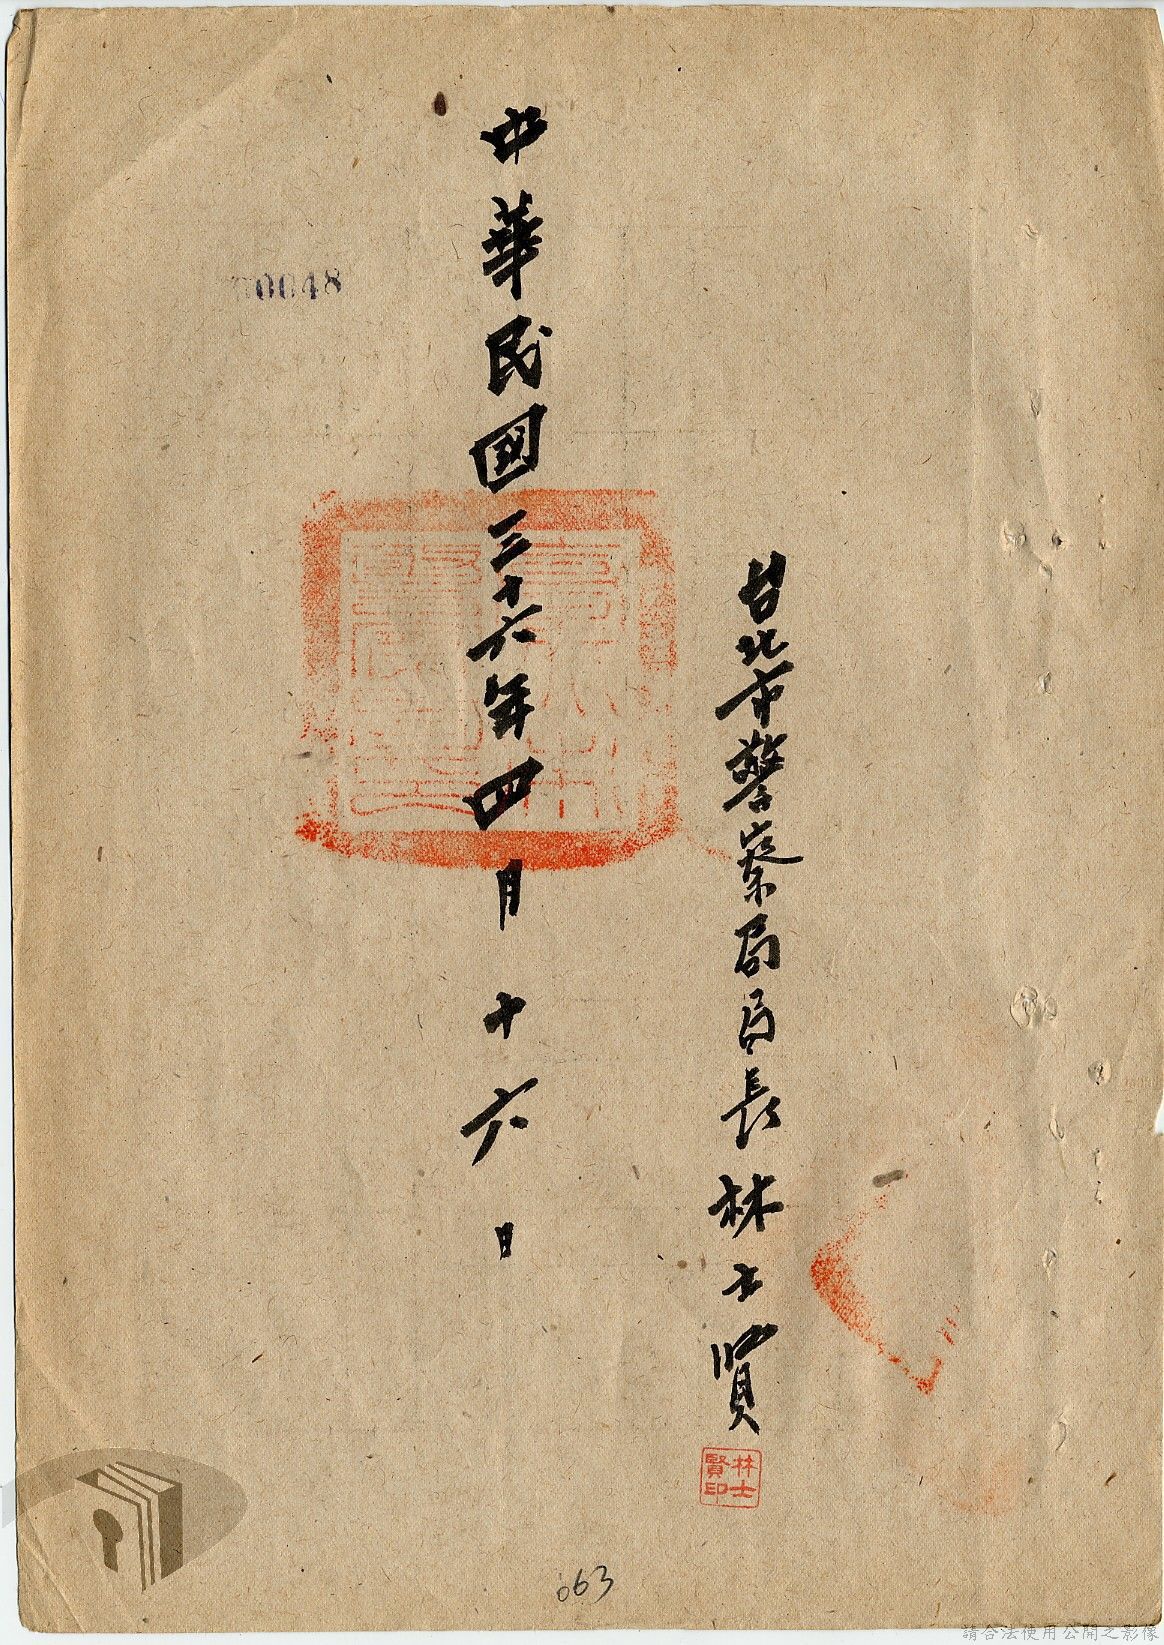 台北市警察局局長林士賢
林士賢印
中華民國三十六年四月十六日
00048
063
請合法使用公開之影像